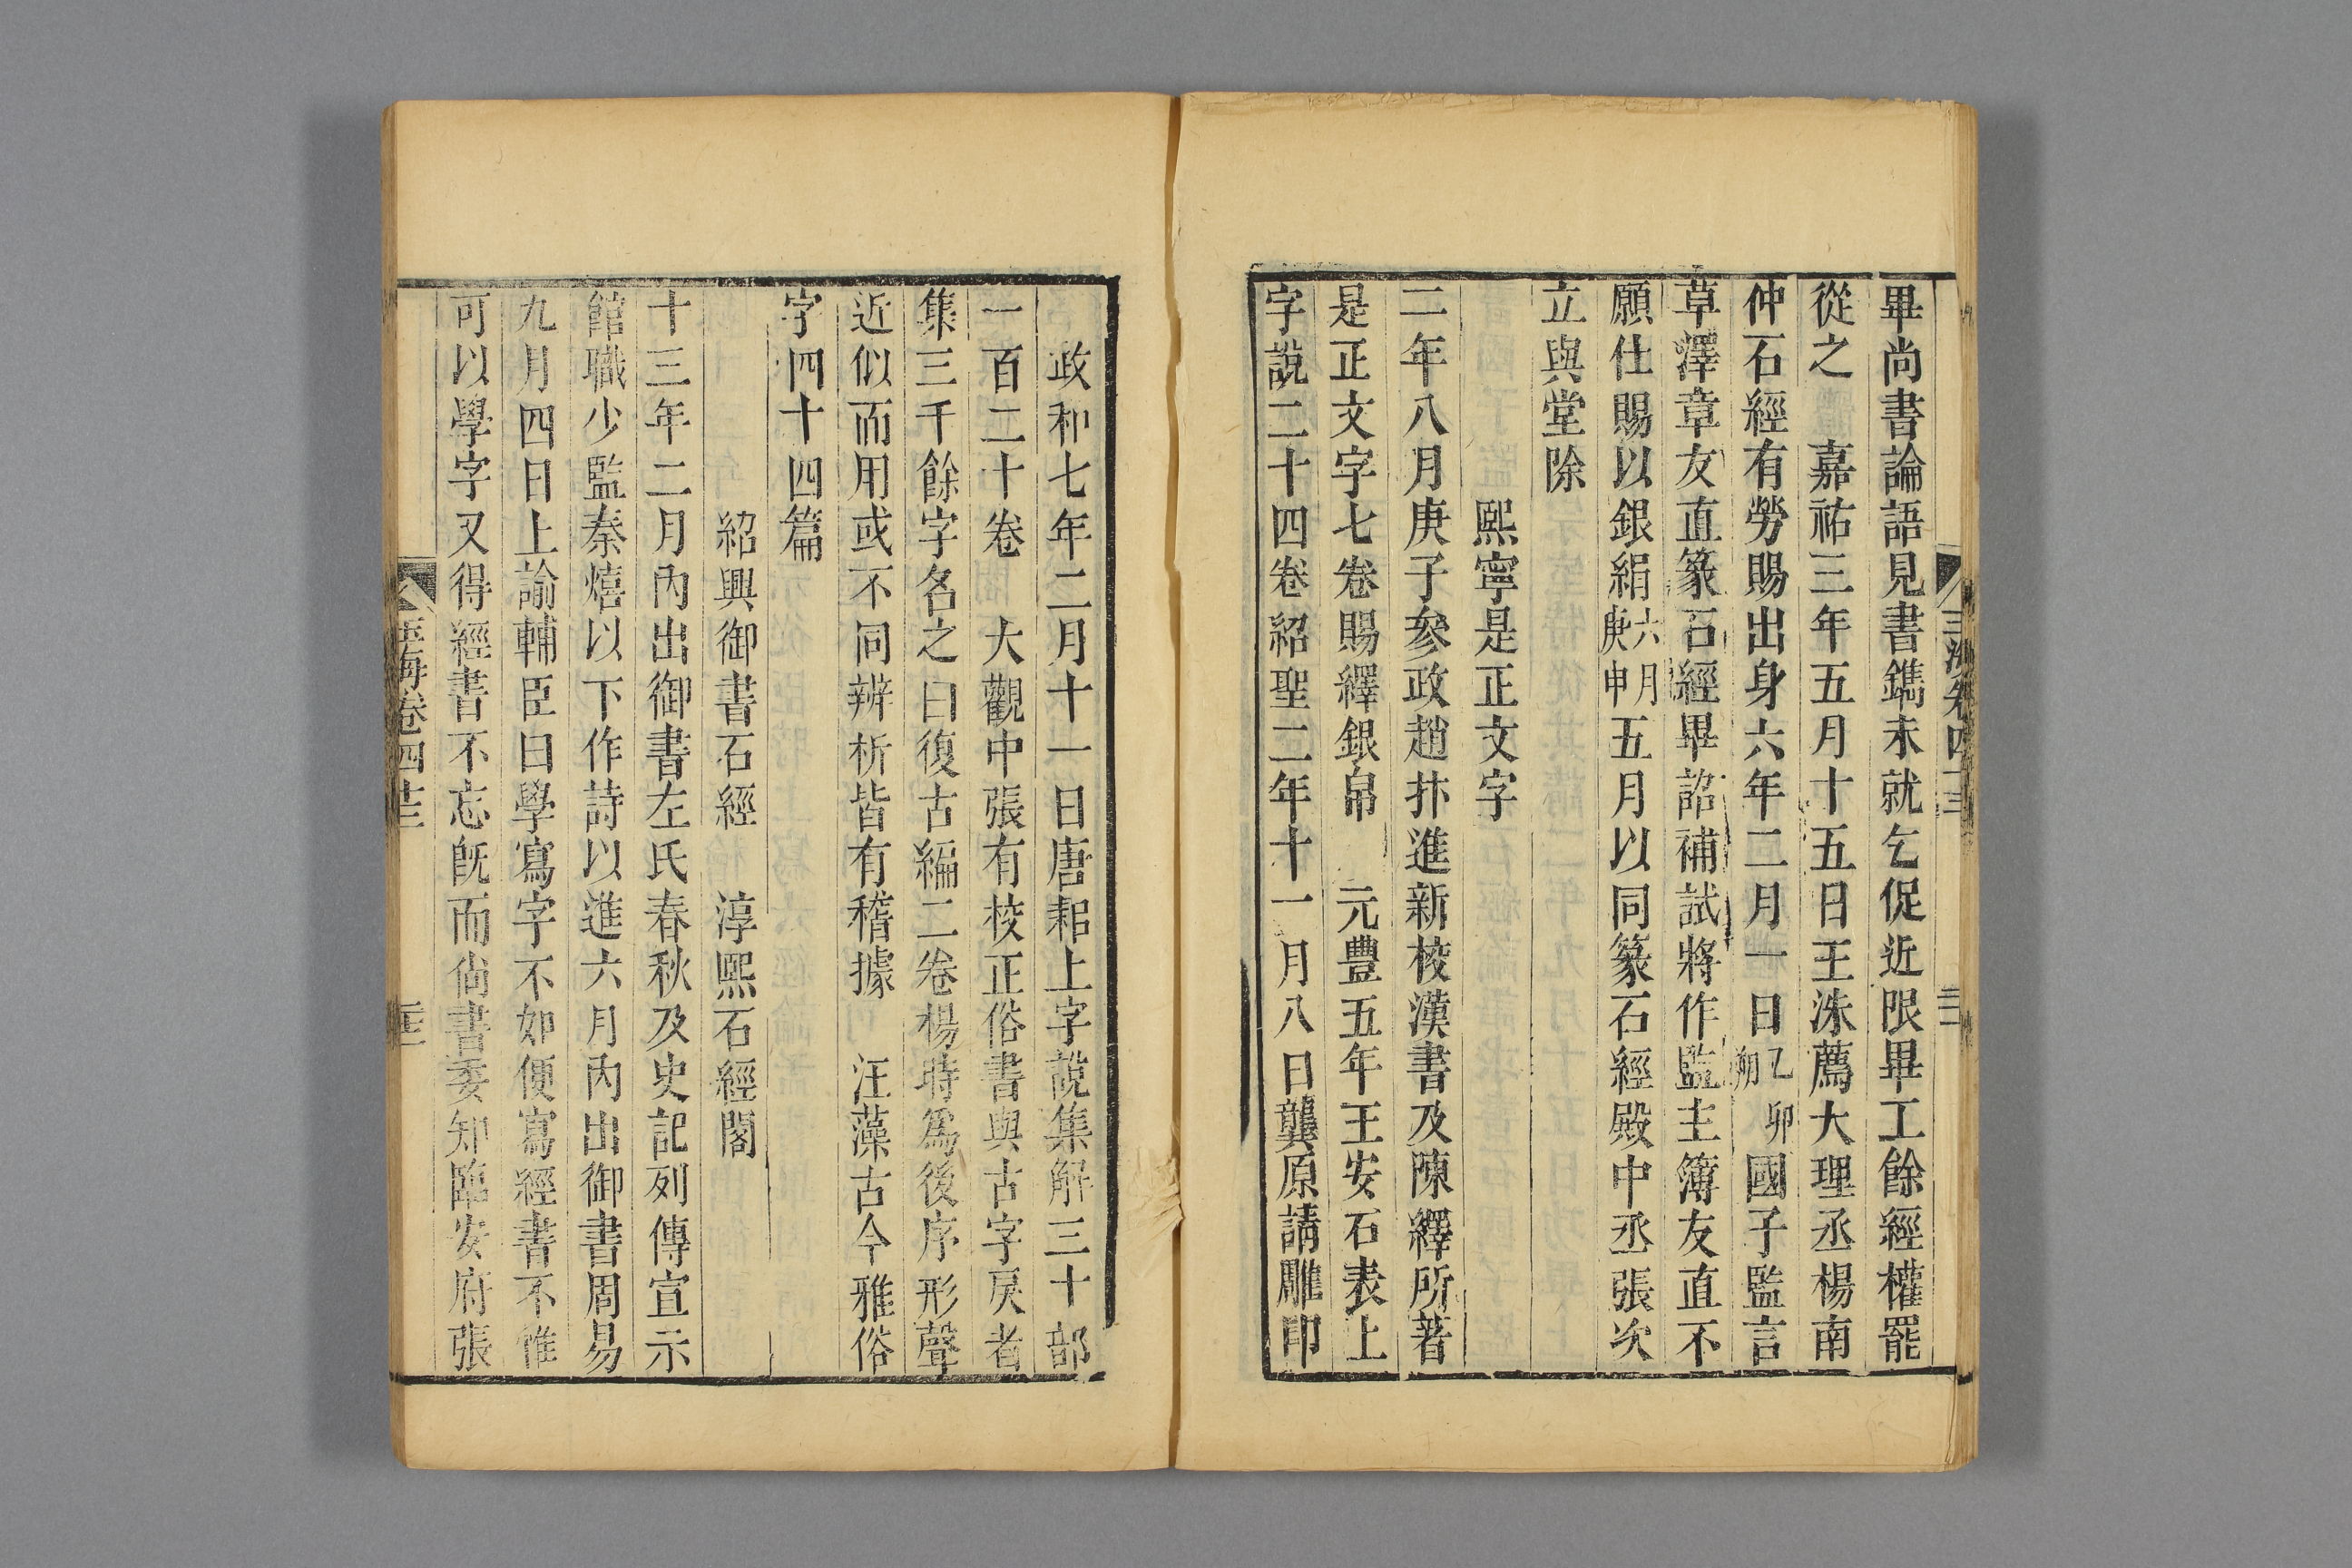 畢尚書論語見書鐫未就乞促近限畢工餘經權罷
從之　嘉祐三年五月十五日王洙薦大理丞楊南
仲石經有勞賜出身六年二月一日乙卯朔國子監言
草澤章友直篆石經畢詔補試將作監主簿友直不
願仕賜以銀絹六月庚申五月以同篆石經殿中丞張次
立與堂除
熙寧是正文字
二年八月庚子參政趙抃進新校漢書及陳繹所著
是正文字七卷賜繹銀帛　元豐五年王安石表上
字說二十四卷紹聖二年十一月八日龔原請雕印
政和七年二月十一日唐耜上字說集解三十部
一百二十卷　大觀中張有校正俗書與古字戾者
集三千餘字名之曰復古編二卷楊時爲後序形聲
近似而用或不同辨析皆有稽據　汪藻古今雅俗
字四十四篇
紹興御書石經　淳熙石經閣
十三年二月內出御書左氏春秋及史記列傳宣示
館職少監秦熺以下作詩以進六月內出御書周易
九月四日上諭輔臣曰學寫字不如便寫經書不惟
可以學字又得經書不忘既而尚書委知臨安府張
玉海卷四十三